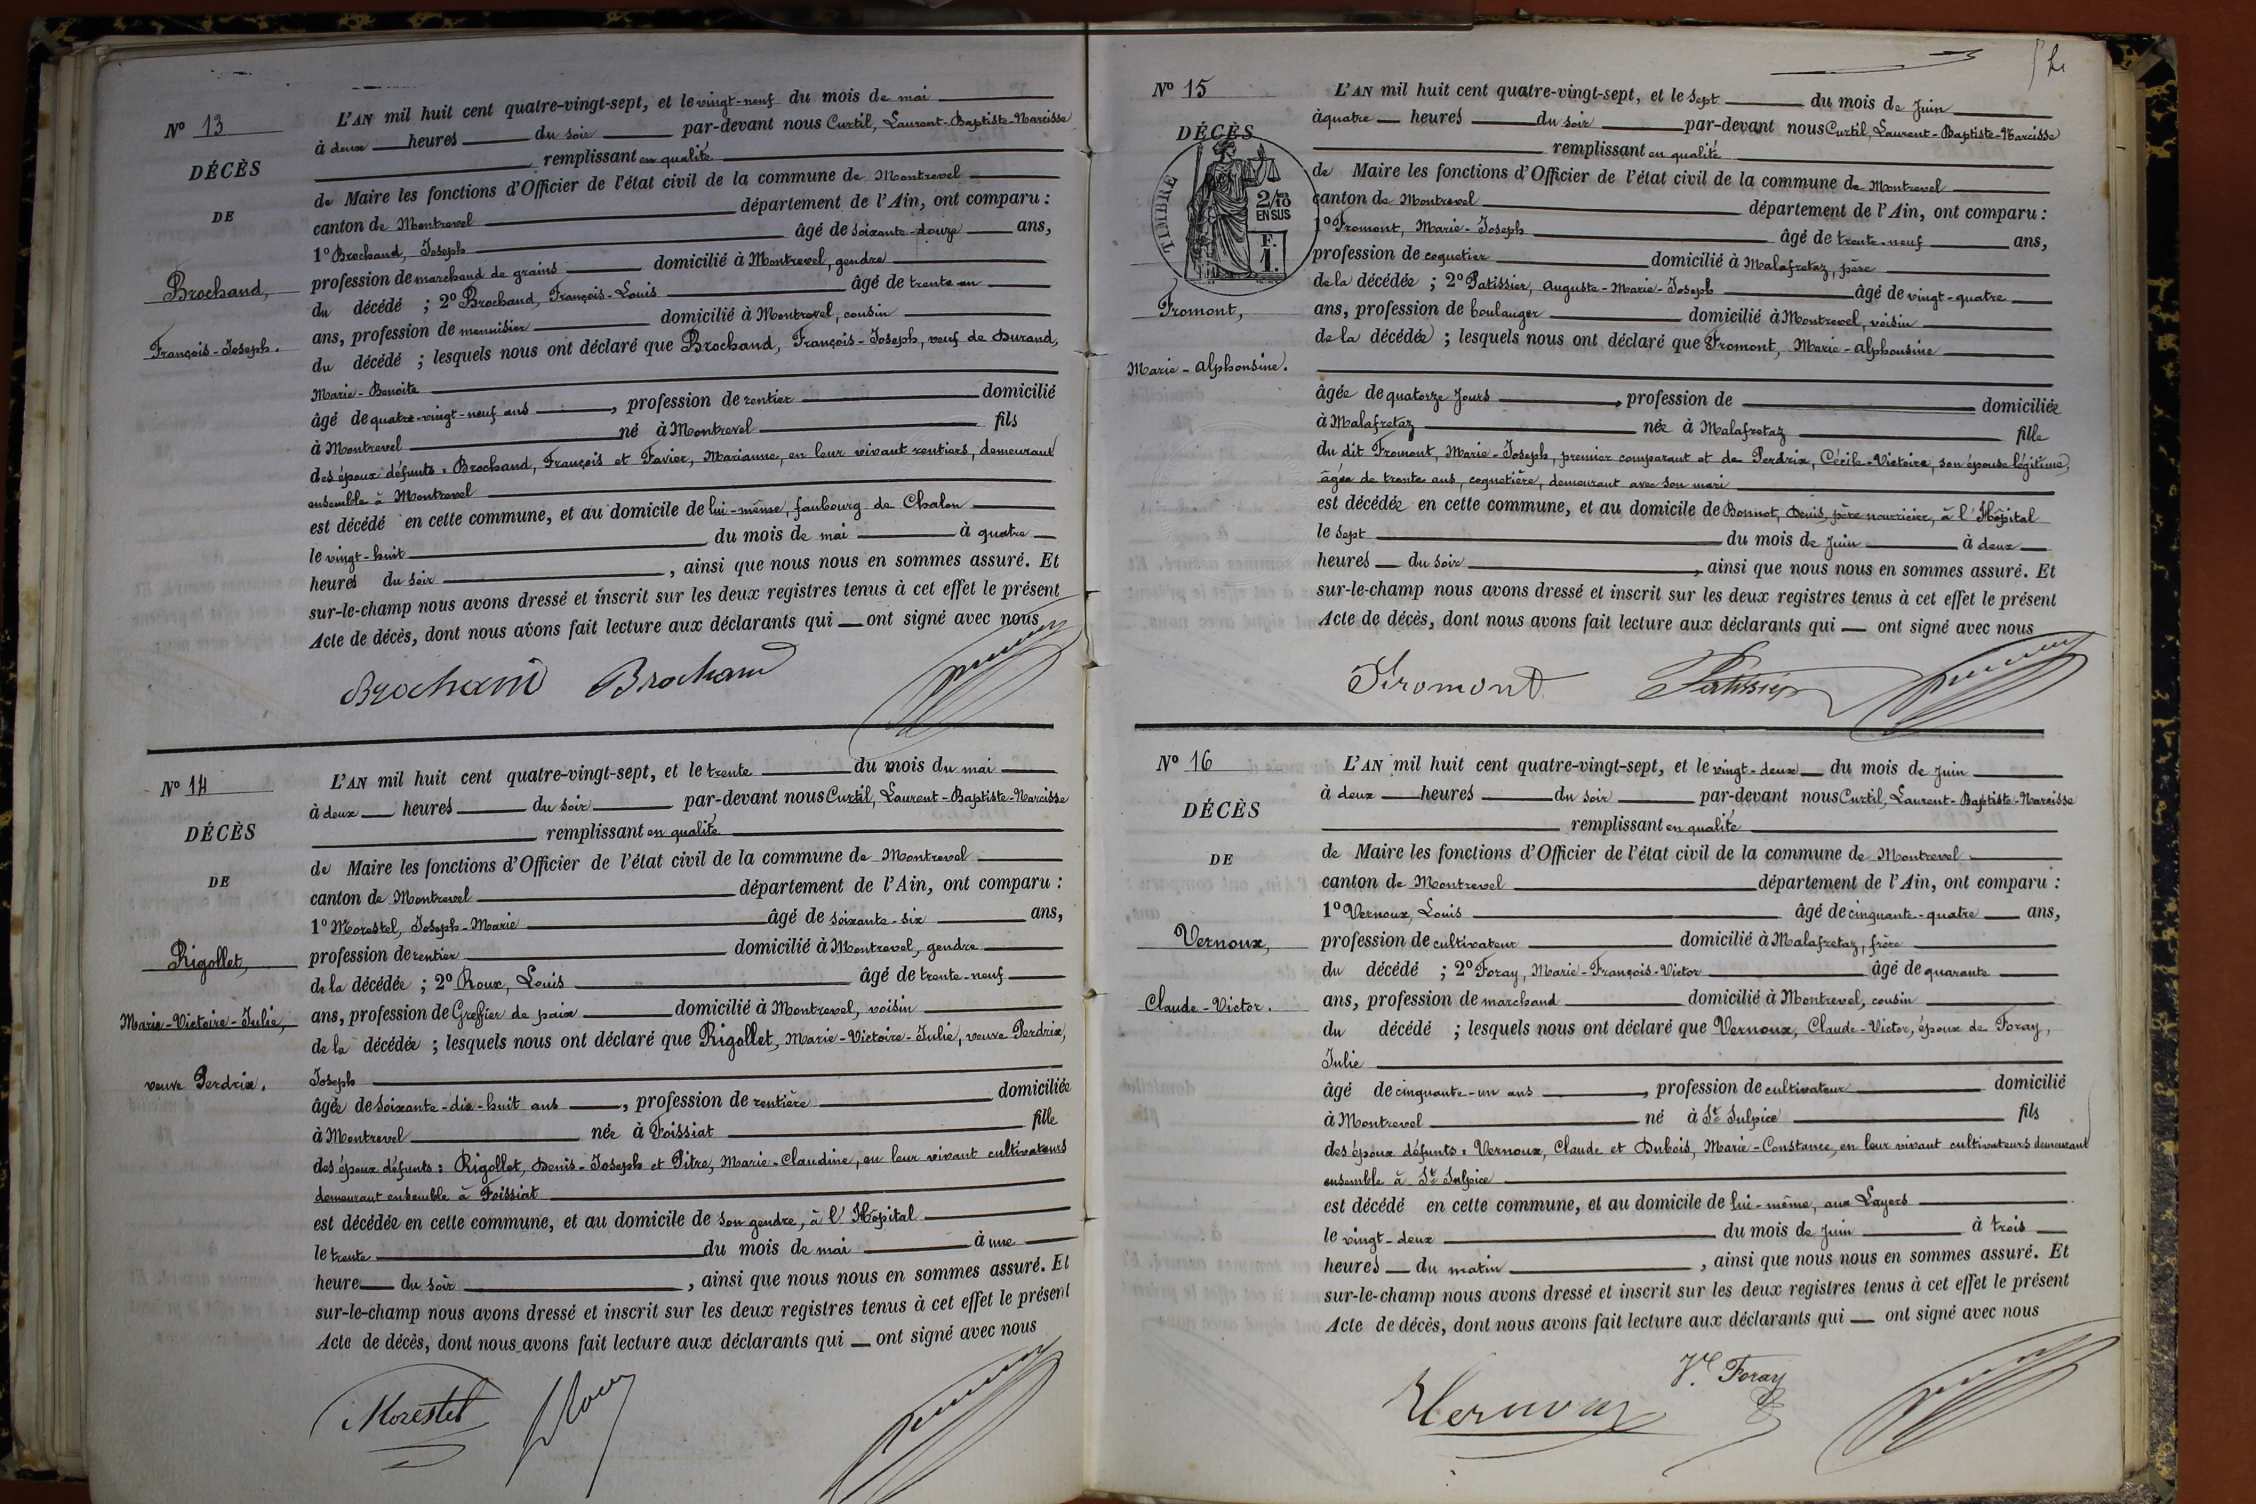 Nº 13
DÉCÈS
DE
Brochand,
François-Joseph.
L'AN mil huit cent quatre-vingt-sept, et le vingt-neuf du mois de mai
à deux heures du soir par-devant nous Curtil, Laurent-Baptiste-Narcisse
remplissant en qualité
de Maire les fonctions d'Officier de l'état civil de la commune de Montrevel
canton de Montrevel département de l'Ain, ont comparu :
1º Brochand, Joseph âgé de soixante-douze ans,
profession de marchand de grains domicilié à Montrevel, gendre
du décédé ; 2º Brochand, François-Louis âgé de trente-un
ans, profession de menuisier domicilié à Montrevel, cousin
du décédé ; lesquels nous ont déclaré que Brochand, François-Joseph, veuf de Durand,
Marie-Benoite
âgé de quatre-vingt-neuf ans, profession de rentier domicilié
à Montrevel né à Montrevel fils
des époux défunts : Brochand, François et Favier, Marianne, en leur vivant rentiers, demeurant
ensemble à Montrevel
est décédé en cette commune, et au domicile de lui-même, faubourg de Chalon
le vingt-huit du mois de mai à quatre
heures du soir, ainsi que nous nous en sommes assuré. Et
sur-le-champ nous avons dressé et inscrit sur les deux registres tenus à cet effet le présent
Acte de décès, dont nous avons fait lecture aux déclarants qui ont signé avec nous
Brochand Brochand
Nº 14
DÉCÈS
DE
Rigollet,
Marie-Victoire-Julie,
veuve Perdrix.
L'AN mil huit cent quatre-vingt-sept, et le trente du mois du mai
à deux heures du soir par-devant nous Curtil, Laurent-Baptiste-Narcisse
remplissant en qualité
de Maire les fonctions d'Officier de l'état civil de la commune de Montrevel
canton de Montrevel département de l'Ain, ont comparu :
1º Morestel, Joseph-Marie âgé de soixante-six ans,
profession de rentier domicilié à Montrevel, gendre
de la décédée ; 2º Roux, Louis âgé de trente-neuf
ans, profession de Greffier de paix domicilié à Montrevel, voisin
de la décédée ; lesquels nous ont déclaré que Rigollet, Marie-Victoire-Julie, veuve Perdrix,
Joseph
âgée de soixante-dix-huit ans, profession de rentière domiciliée
à Montrevel née à Foissiat fille
des époux défunts : Rigollet, Denis-Joseph et Pitre, Marie-Claudine, en leur vivant cultivateurs
demeurant ensemble à Foissiat
est décédée en cette commune, et au domicile de son gendre, à l'Hôpital
le trente du mois de mai à une
heure du soir, ainsi que nous nous en sommes assuré. Et
sur-le-champ nous avons dressé et inscrit sur les deux registres tenus à cet effet le présent
Acte de décès, dont nous avons fait lecture aux déclarants qui ont signé avec nous
Morestel Roux
Nº 15
DÉCÈS
TIMBRE
2/10
EN SUS
F.
1.
Fromont,
Marie-Alphonsine.
L'AN mil huit cent quatre-vingt-sept, et le sept du mois de Juin
à quatre heures du soir par-devant nous Curtil, Laurent-Baptiste-Narcisse
remplissant en qualité
de Maire les fonctions d'Officier de l'état civil de la commune de Montrevel
canton de Montrevel département de l'Ain, ont comparu :
1º Fromont, Marie-Joseph âgé de trente-neuf ans,
profession de coquetier domicilié à Malafretaz, père
de la décédée ; 2º Patissier, Auguste-Marie-Joseph âgé de vingt-quatre
ans, profession de boulanger domicilié à Montrevel, voisin
de la décédée ; lesquels nous ont déclaré que Fromont, Marie-Alphonsine
âgée de quatorze Jours, profession de domiciliée
à Malafretaz née à Malafretaz fille
du dit Fromont, Marie-Joseph, premier comparant et de Perdrix, Cécile-Victoire, son épouse légitime,
âgée de trente ans, coquetière, demeurant avec son mari
est décédée en cette commune, et au domicile de Bonnot, Denis, père nourricier, à l'Hôpital
le sept du mois de Juin à deux
heures du soir, ainsi que nous nous en sommes assuré. Et
sur-le-champ nous avons dressé et inscrit sur les deux registres tenus à cet effet le présent
Acte de décès, dont nous avons fait lecture aux déclarants qui ont signé avec nous
Fromont Patissier
Nº 16
DÉCÈS
DE
Vernoux,
Claude-Victor.
L'AN mil huit cent quatre-vingt-sept, et le vingt-deux du mois de Juin
à deux heures du soir par-devant nous Curtil, Laurent-Baptiste-Narcisse
remplissant en qualité
de Maire les fonctions d'Officier de l'état civil de la commune de Montrevel
canton de Montrevel département de l'Ain, ont comparu :
1º Vernoux, Louis âgé de cinquante-quatre ans,
profession de cultivateur domicilié à Malafretaz, frère
du décédé ; 2º Foray, Marie-François-Victor âgé de quarante
ans, profession de marchand domicilié à Montrevel, cousin
du décédé ; lesquels nous ont déclaré que Vernoux, Claude-Victor, époux de Foray,
Julie
âgé de cinquante-un ans, profession de cultivateur domicilié
à Montrevel né à St Sulpice fils
des époux défunts : Vernoux, Claude et Dubois, Marie-Constance, en leur vivant cultivateurs demeurant
ensemble à St Sulpice
est décédé en cette commune, et au domicile de lui-même, aux Layers
le vingt-deux du mois de Juin à trois
heures du matin, ainsi que nous nous en sommes assuré. Et
sur-le-champ nous avons dressé et inscrit sur les deux registres tenus à cet effet le présent
Acte de décès, dont nous avons fait lecture aux déclarants qui ont signé avec nous
Vernoux Vr. Foray